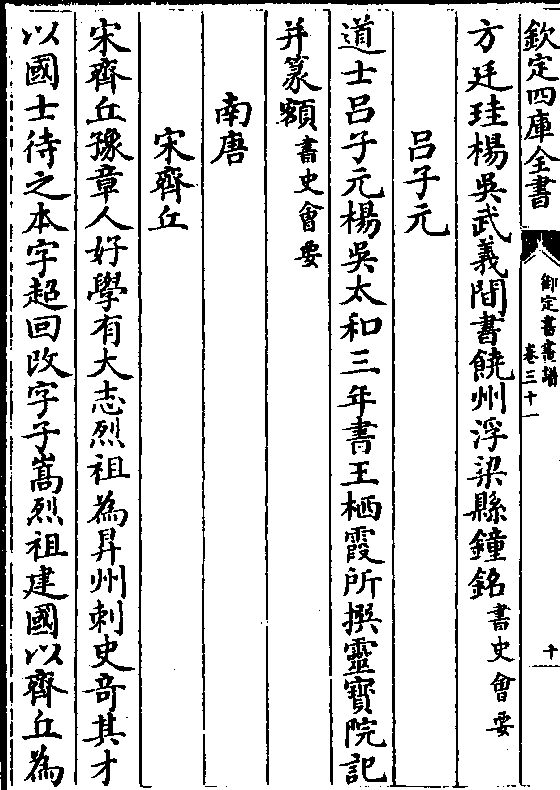 欽定四庫全書
御定書畫譜
卷三十一
十
方廷珪楊吳武義間書饒州浮梁縣鐘銘書史會要
呂子元
道士呂子元楊吳太和三年書王栖霞所撰靈寶院記
并篆額書史會要
南唐
宋齊丘
宋齊丘豫章人好學有大志烈祖為昇州刺史竒其才
以國士待之本字超回改字子嵩烈祖建國以齊丘為